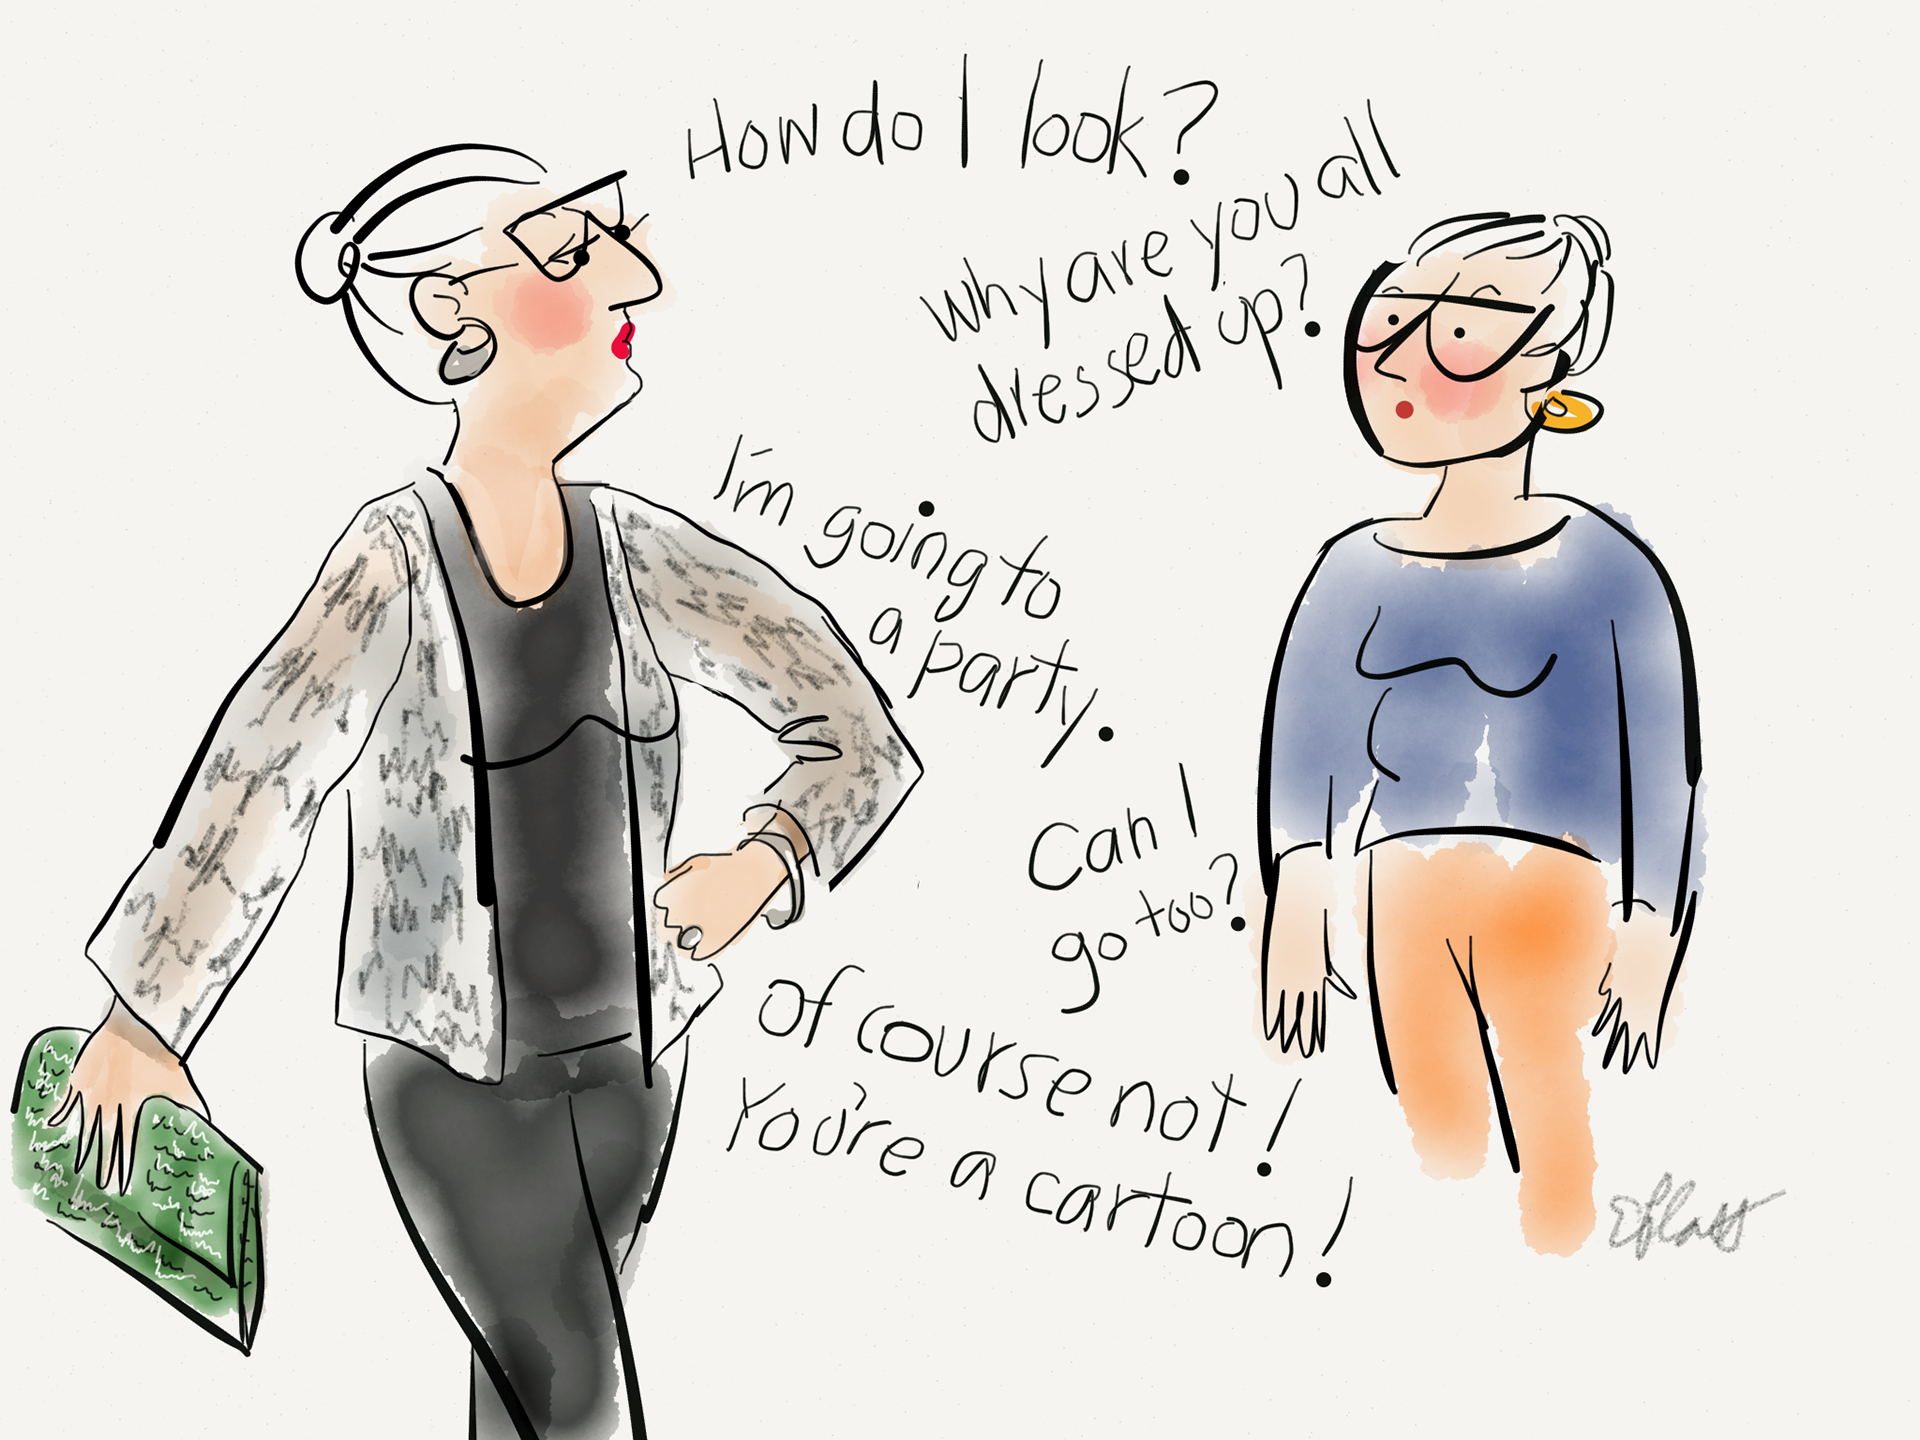 How do I look?
Why are you all
dressed up?
I'm going to
a party.
Can I
go too?
Of course not!
You're a cartoon!